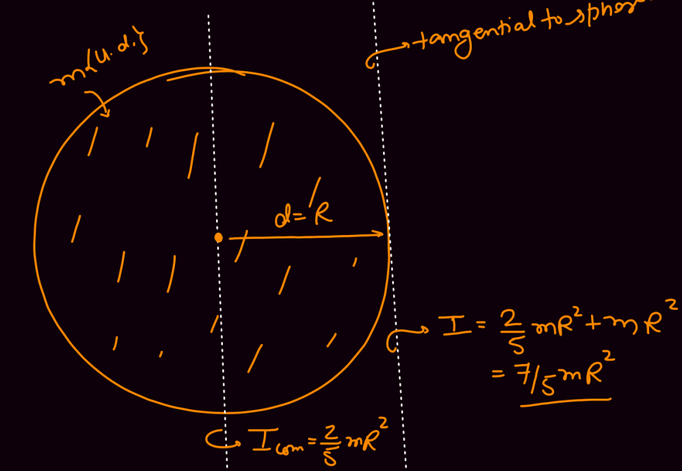 tangential to
m{u.d.}
d=R
I = 2/5 mR² + mR²
= 7/5 mR²
I_com = 2/5 mR²